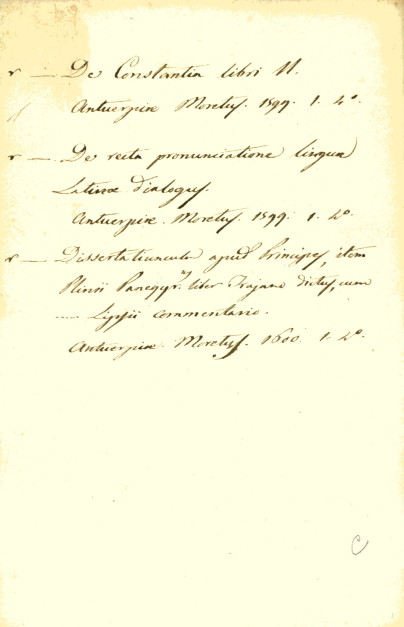 r — De Constantia libri II.
Antuerpiæ Moretus. 1599. 1. 4°.
r — De recta pronunciatione linguæ
Latinæ dialogus.
Antuerpiæ. Moretus. 1599. 1. 4°.
r — Dissertatiuncula apud Principes, item
Plinii Panegyr. liber Trajano dictus, cum
..... Lipsii commentario.
Antuerpiæ. Moretus. 1600. 1. 4°.
C